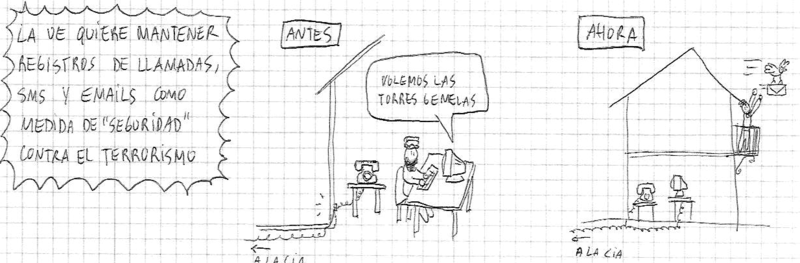 LA UE QUIERE MANTENER
REGISTROS DE LLAMADAS,
SMS Y EMAILS COMO
MEDIDA DE "SEGURIDAD"
CONTRA EL TERRORISMO
ANTES
VOLEMOS LAS
TORRES GEMELAS
A LA CIA
AHORA
A LA CIA